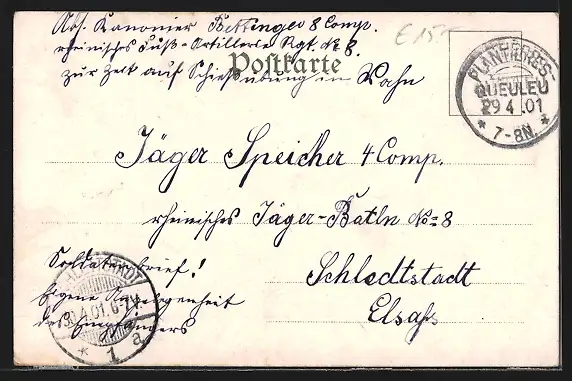 Abs. Kanonier Bettinger 8 Comp.
rheinisches Fuß-Artillerie Rgt. No 8.
zur Zeit auf Schießübung in Wahn
Postkarte
£15-
PLANTIÈRES-
QUEULEU
29 4 .01
* 7-8N. *
Jäger Speicher 4 Comp.
rheinisches Jäger-Batln No 8
Schledtstadt
Elsaß
Soldatenbrief!
Eigene Angelegenheit
des Empfängers
30.4.01. 6-7V.
* 1 a